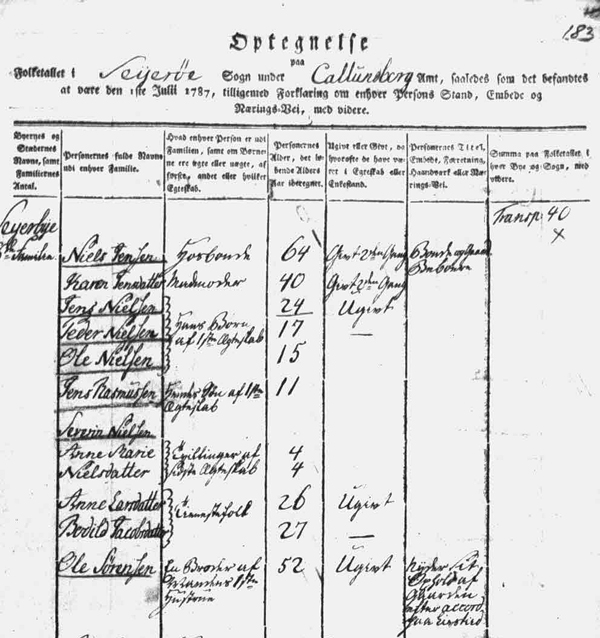 183
Optegnelse
paa
Folketallet i Seyerøe Sogn under Callundborg Amt, saaledes som det befandtes
at være den 1ste Julii 1787, tilligemed Forklaring om enhver Persons Stand, Embede og
Nærings-Vei, med videre.
Byernes og Stædernes Navne, samt Familiernes Antal.
Personernes fulde Navne udi enhver Familie.
Hvad enhver Person er udi Familien, samt om Børnene ere ægte eller uægte, af første, andet eller hvilket Egteskab.
Personernes Alder, det løbende Alders Aar iberegnet.
Ugivt eller Givt, og hvorofte de have været i Egteskab eller Enkestand.
Personernes Titel, Embede, Forretning, Haandværk eller Nærings-Vei.
Summa paa Folketallet i hver Bye og Sogn, med videre.
Transp. 40
x
Seyerbye
Familie
Niels Jensen Hosbonde 64 Givt 2den Gang Bonde og Gaard Beboere
Karen Jensdatter Madmoder 40 Givt 2den Gang
Jens Nielsen 24 Ugivt
Peder Nielsen Hans Børn 17 —
af 1ste Ægteskab
Ole Nielsen 15
Jens Rasmussen Hendes Søn af 1ste 11
Ægteskab
Severin Nielsen
Anne Marie Tvillinger af 4
Nielsdatter sidste Ægteskab 4
Anne Larsdatter 26 Ugivt
Tienestefolk
Bodild Jacobsdatter 27 —
Ole Sørensen En Broder af 52 Ugivt Nyder sit
Mandens 1ste Ophold af
Hustrue Gaarden
efter accord